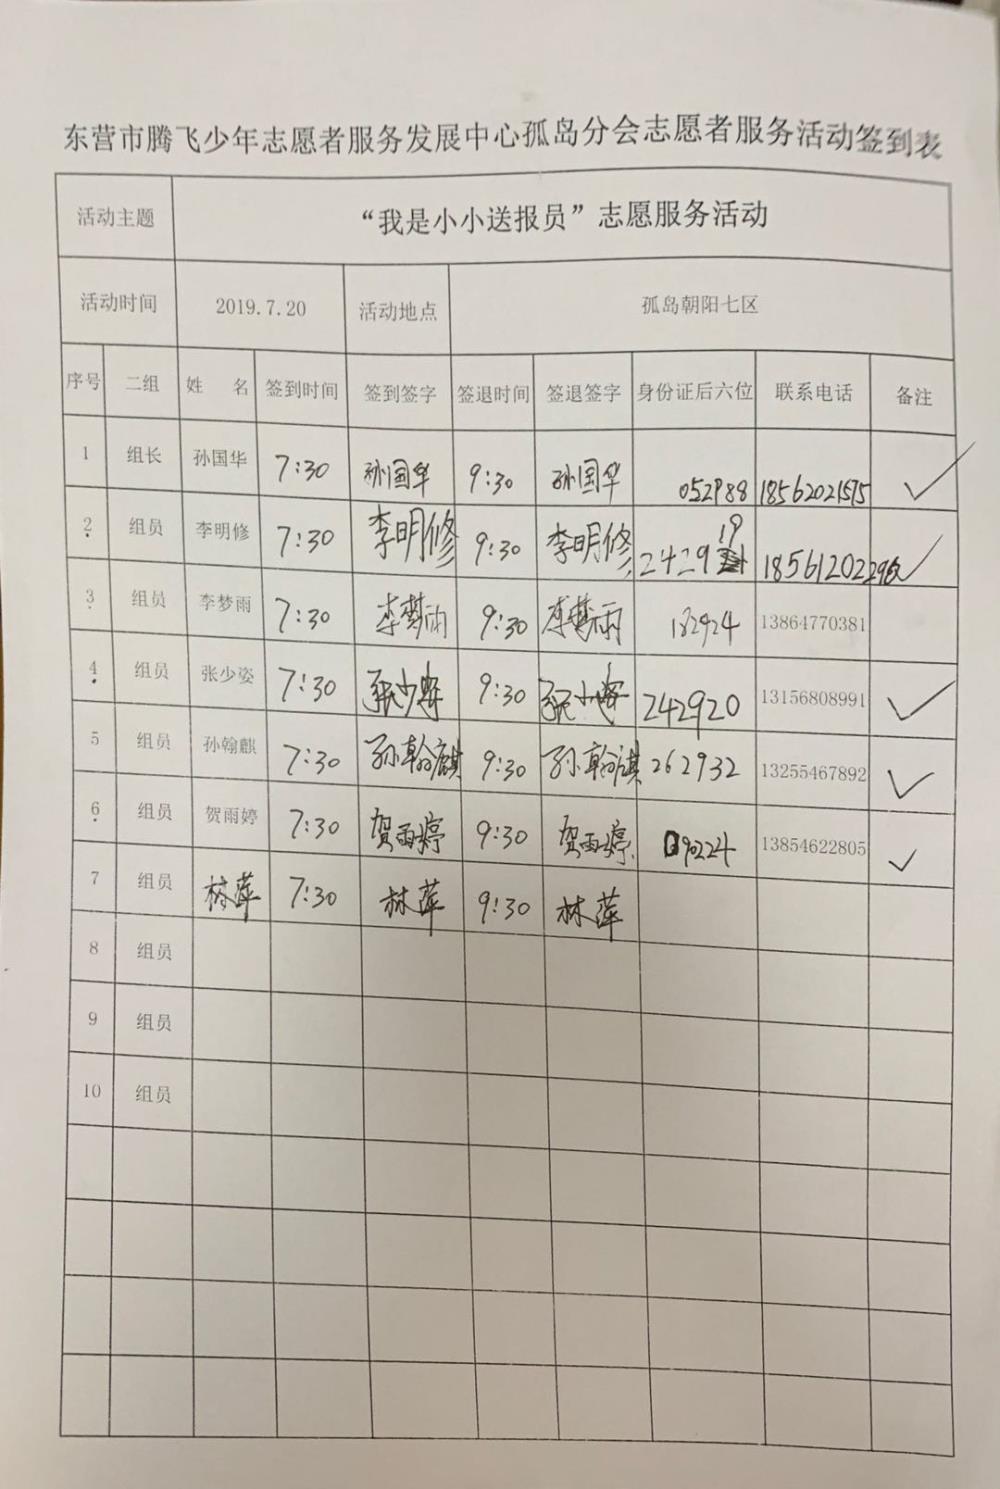 东营市腾飞少年志愿者服务发展中心孤岛分会志愿者服务活动签到表
活动主题 “我是小小送报员”志愿服务活动
活动时间 2019.7.20 活动地点 孤岛朝阳七区
序号 二组 姓 名 签到时间 签到签字 签退时间 签退签字 身份证后六位 联系电话 备注
1 组长 孙国华 7:30 孙国华 9:30 孙国华 052988 18562021575 ✓
2 组员 李明修 7:30 李明修 9:30 李明修 242919 ✓
3 组员 李梦雨 7:30 李梦雨 9:30 李梦雨 182924 13864770381
4 组员 张少姿 7:30 张少姿 9:30 张少姿 242920 13156808991 ✓
5 组员 孙翰麒 7:30 孙翰麒 9:30 孙翰麒 262932 13255467892 ✓
6 组员 贺雨婷 7:30 贺雨婷 9:30 贺雨婷 090224 13854622805 ✓
7 组员 林萍 7:30 林萍 9:30 林萍
8 组员
9 组员
10 组员